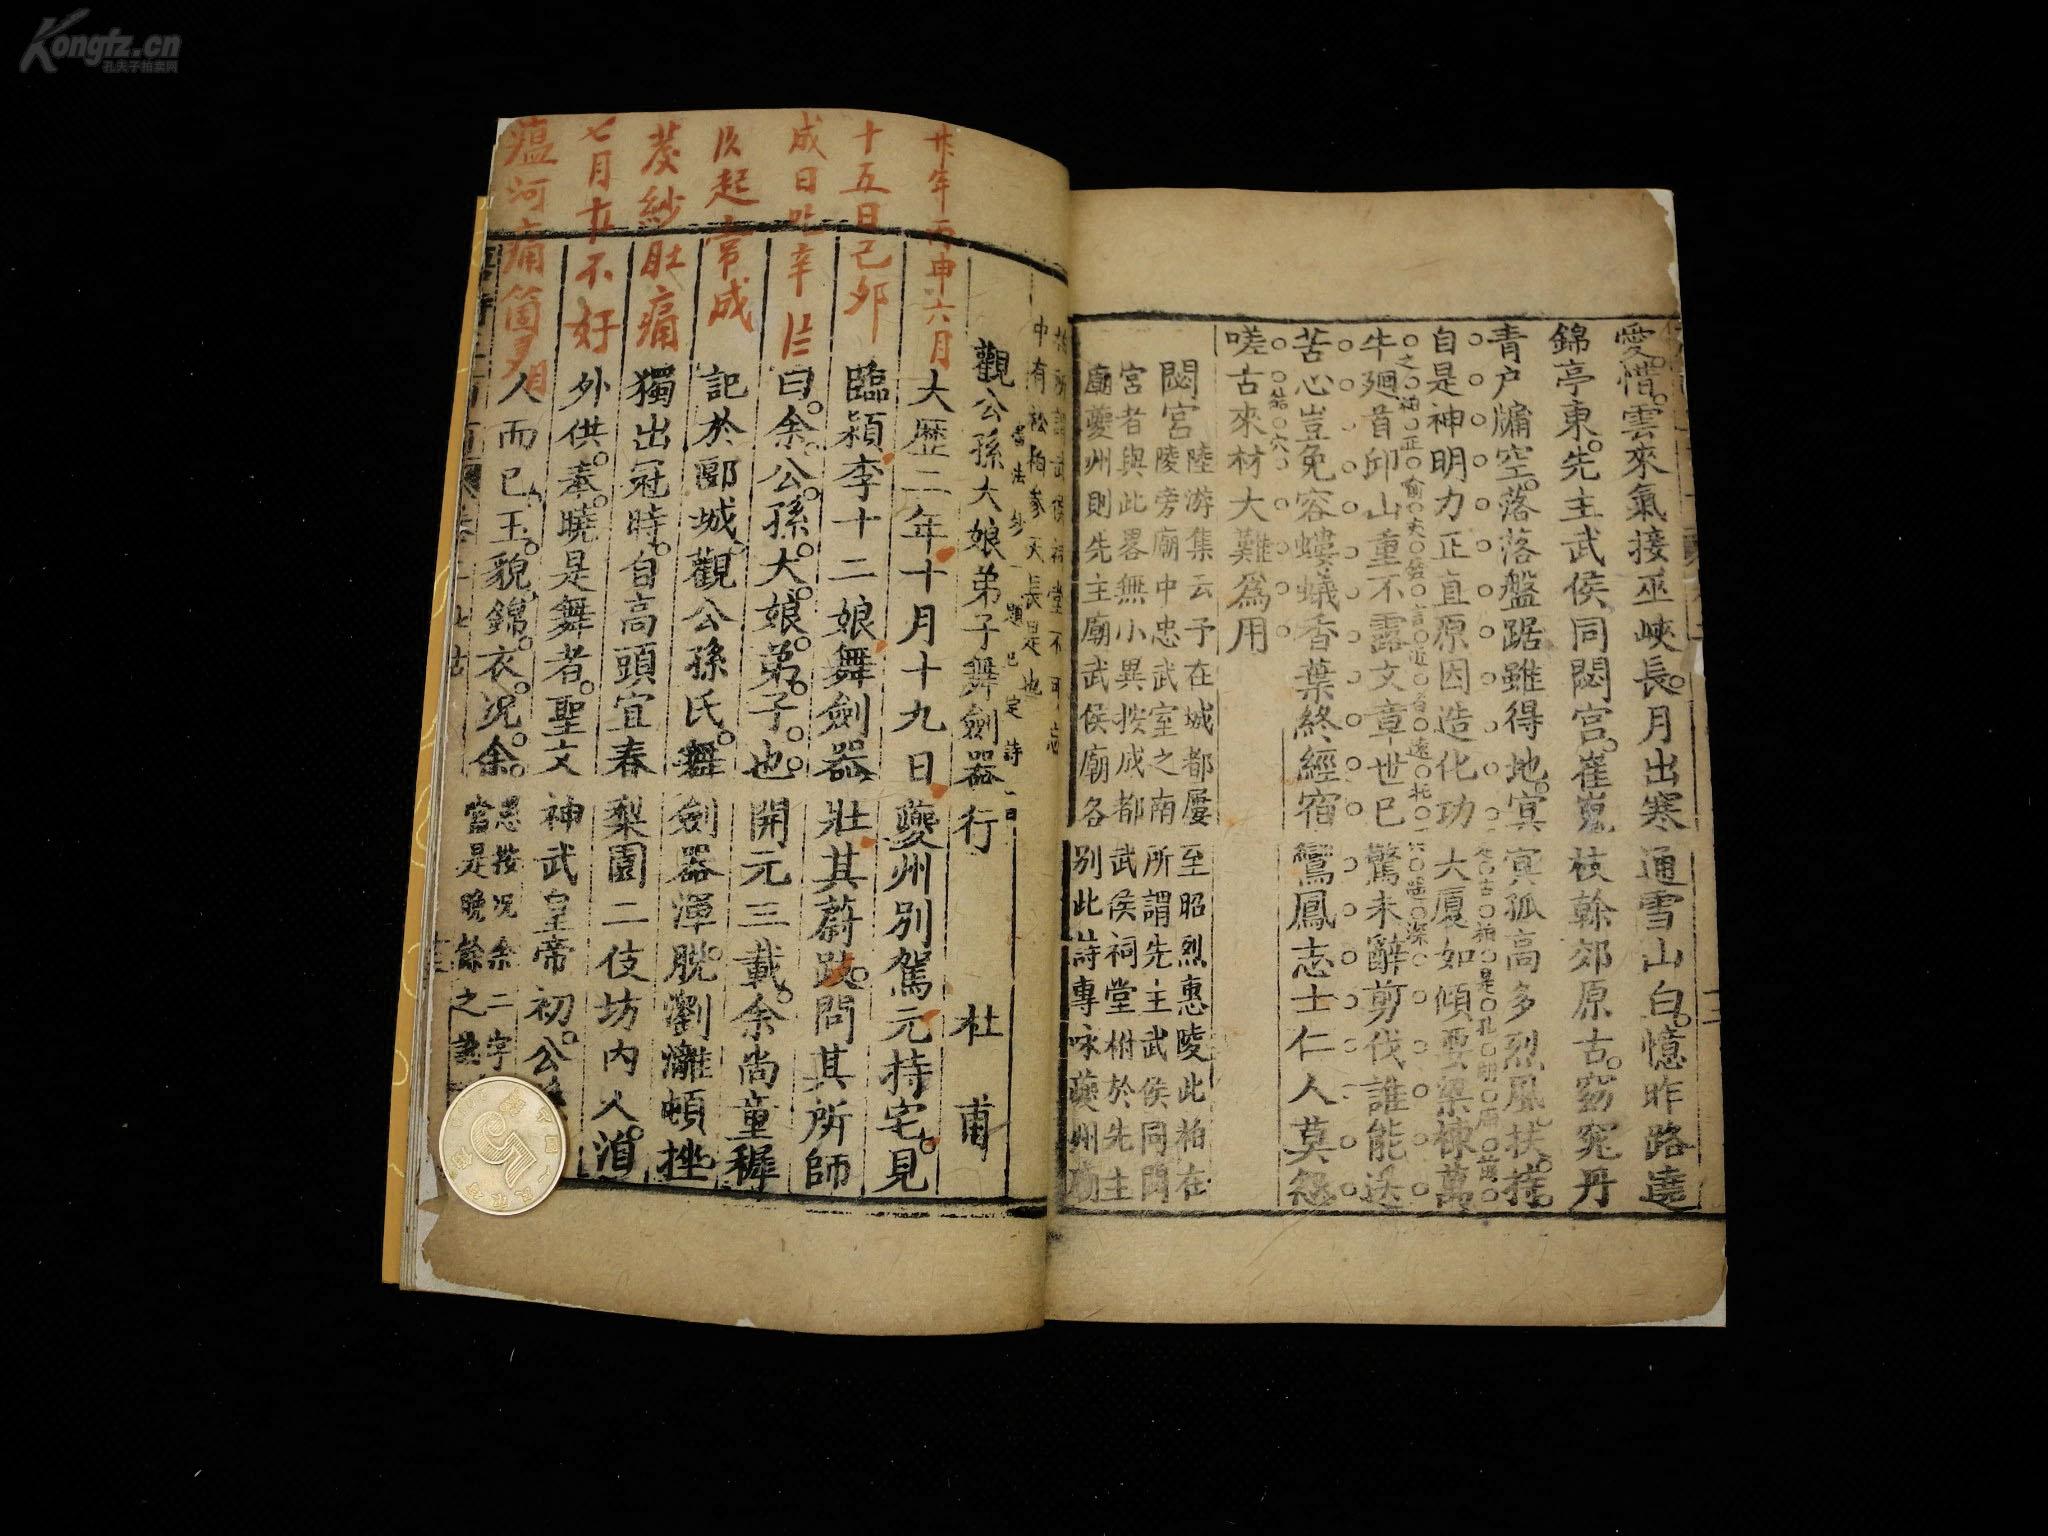 Kongfz.cn
孔夫子拍卖网
愛惜雲來氣接巫峽長月出寒通雪山白憶昨路遶
錦亭東先主武侯同閟宮崔嵬枝幹郊原古窈窕丹
青户牗空落落盤踞雖得地冥冥孤高多烈風扶持
自是神明力正直原因造化功大厦如傾要梁棟萬
牛廻首邱山重不露文章世已驚未辭剪伐誰能送
苦心豈免容螻蟻香葉終經宿鸞鳳志士仁人莫怨
嗟古來材大難為用
閟宮
陸游集云予在城都屢至昭烈惠陵此柏在
陵旁廟中忠武室之南所謂先主武侯同閟
宮者與此畧無小異按成都武侯祠堂柎於先主
廟夔州則先主廟武侯廟各別此詩專咏夔州廟
中有松柏參天長是也
觀公孫大娘弟子舞劍器行 杜甫
大歷二年十月十九日夔州別駕元持宅見
臨潁李十二娘舞劍器壯其蔚跂問其所師
曰余公孫大娘弟子也開元三載余尚童穉
記於郾城觀公孫氏舞劍器渾脫瀏灕頓挫
獨出冠時自高頭宜春梨園二伎坊內人洎
外供奉曉是舞者聖文神武皇帝初公
人而已玉貌錦衣况余
愚按况余二字
當是晚餘之
年丙申六月
十五日己夘
成日
起常成
紗肚痛
七月十五不好
瘟河痛箇多月
5